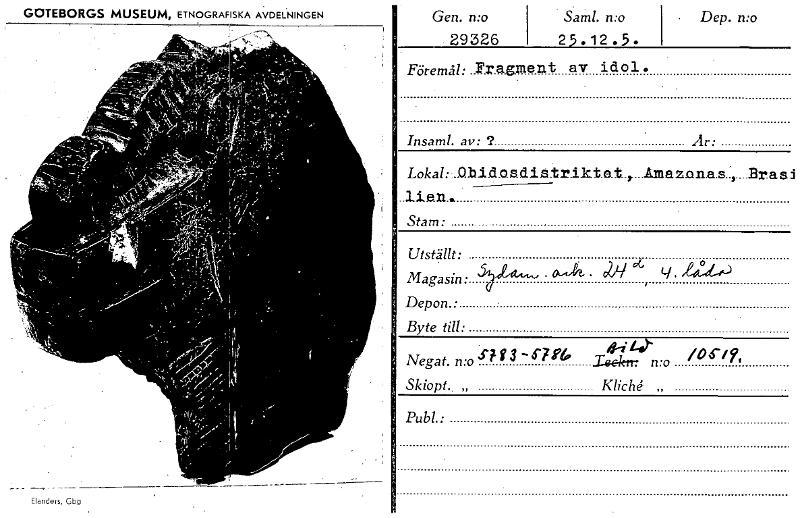 GÖTEBORGS MUSEUM, ETNOGRAFISKA AVDELNINGEN
Gen. n:o Saml. n:o Dep. n:o
29326 25.12.5.
Föremål: Fragment av idol.
Insaml. av: ? År:
Lokal: Obidosdistriktet, Amazonas, Brasi
lien.
Stam:
Utställt:
Magasin: Sydam. ark. 24d, 4. låda
Depon.:
Byte till:
Negat. n:o 5783-5786 Teckn: Bild n:o 10519.
Skiopt. „ Kliché „
Publ.:
Elanders, Gbg